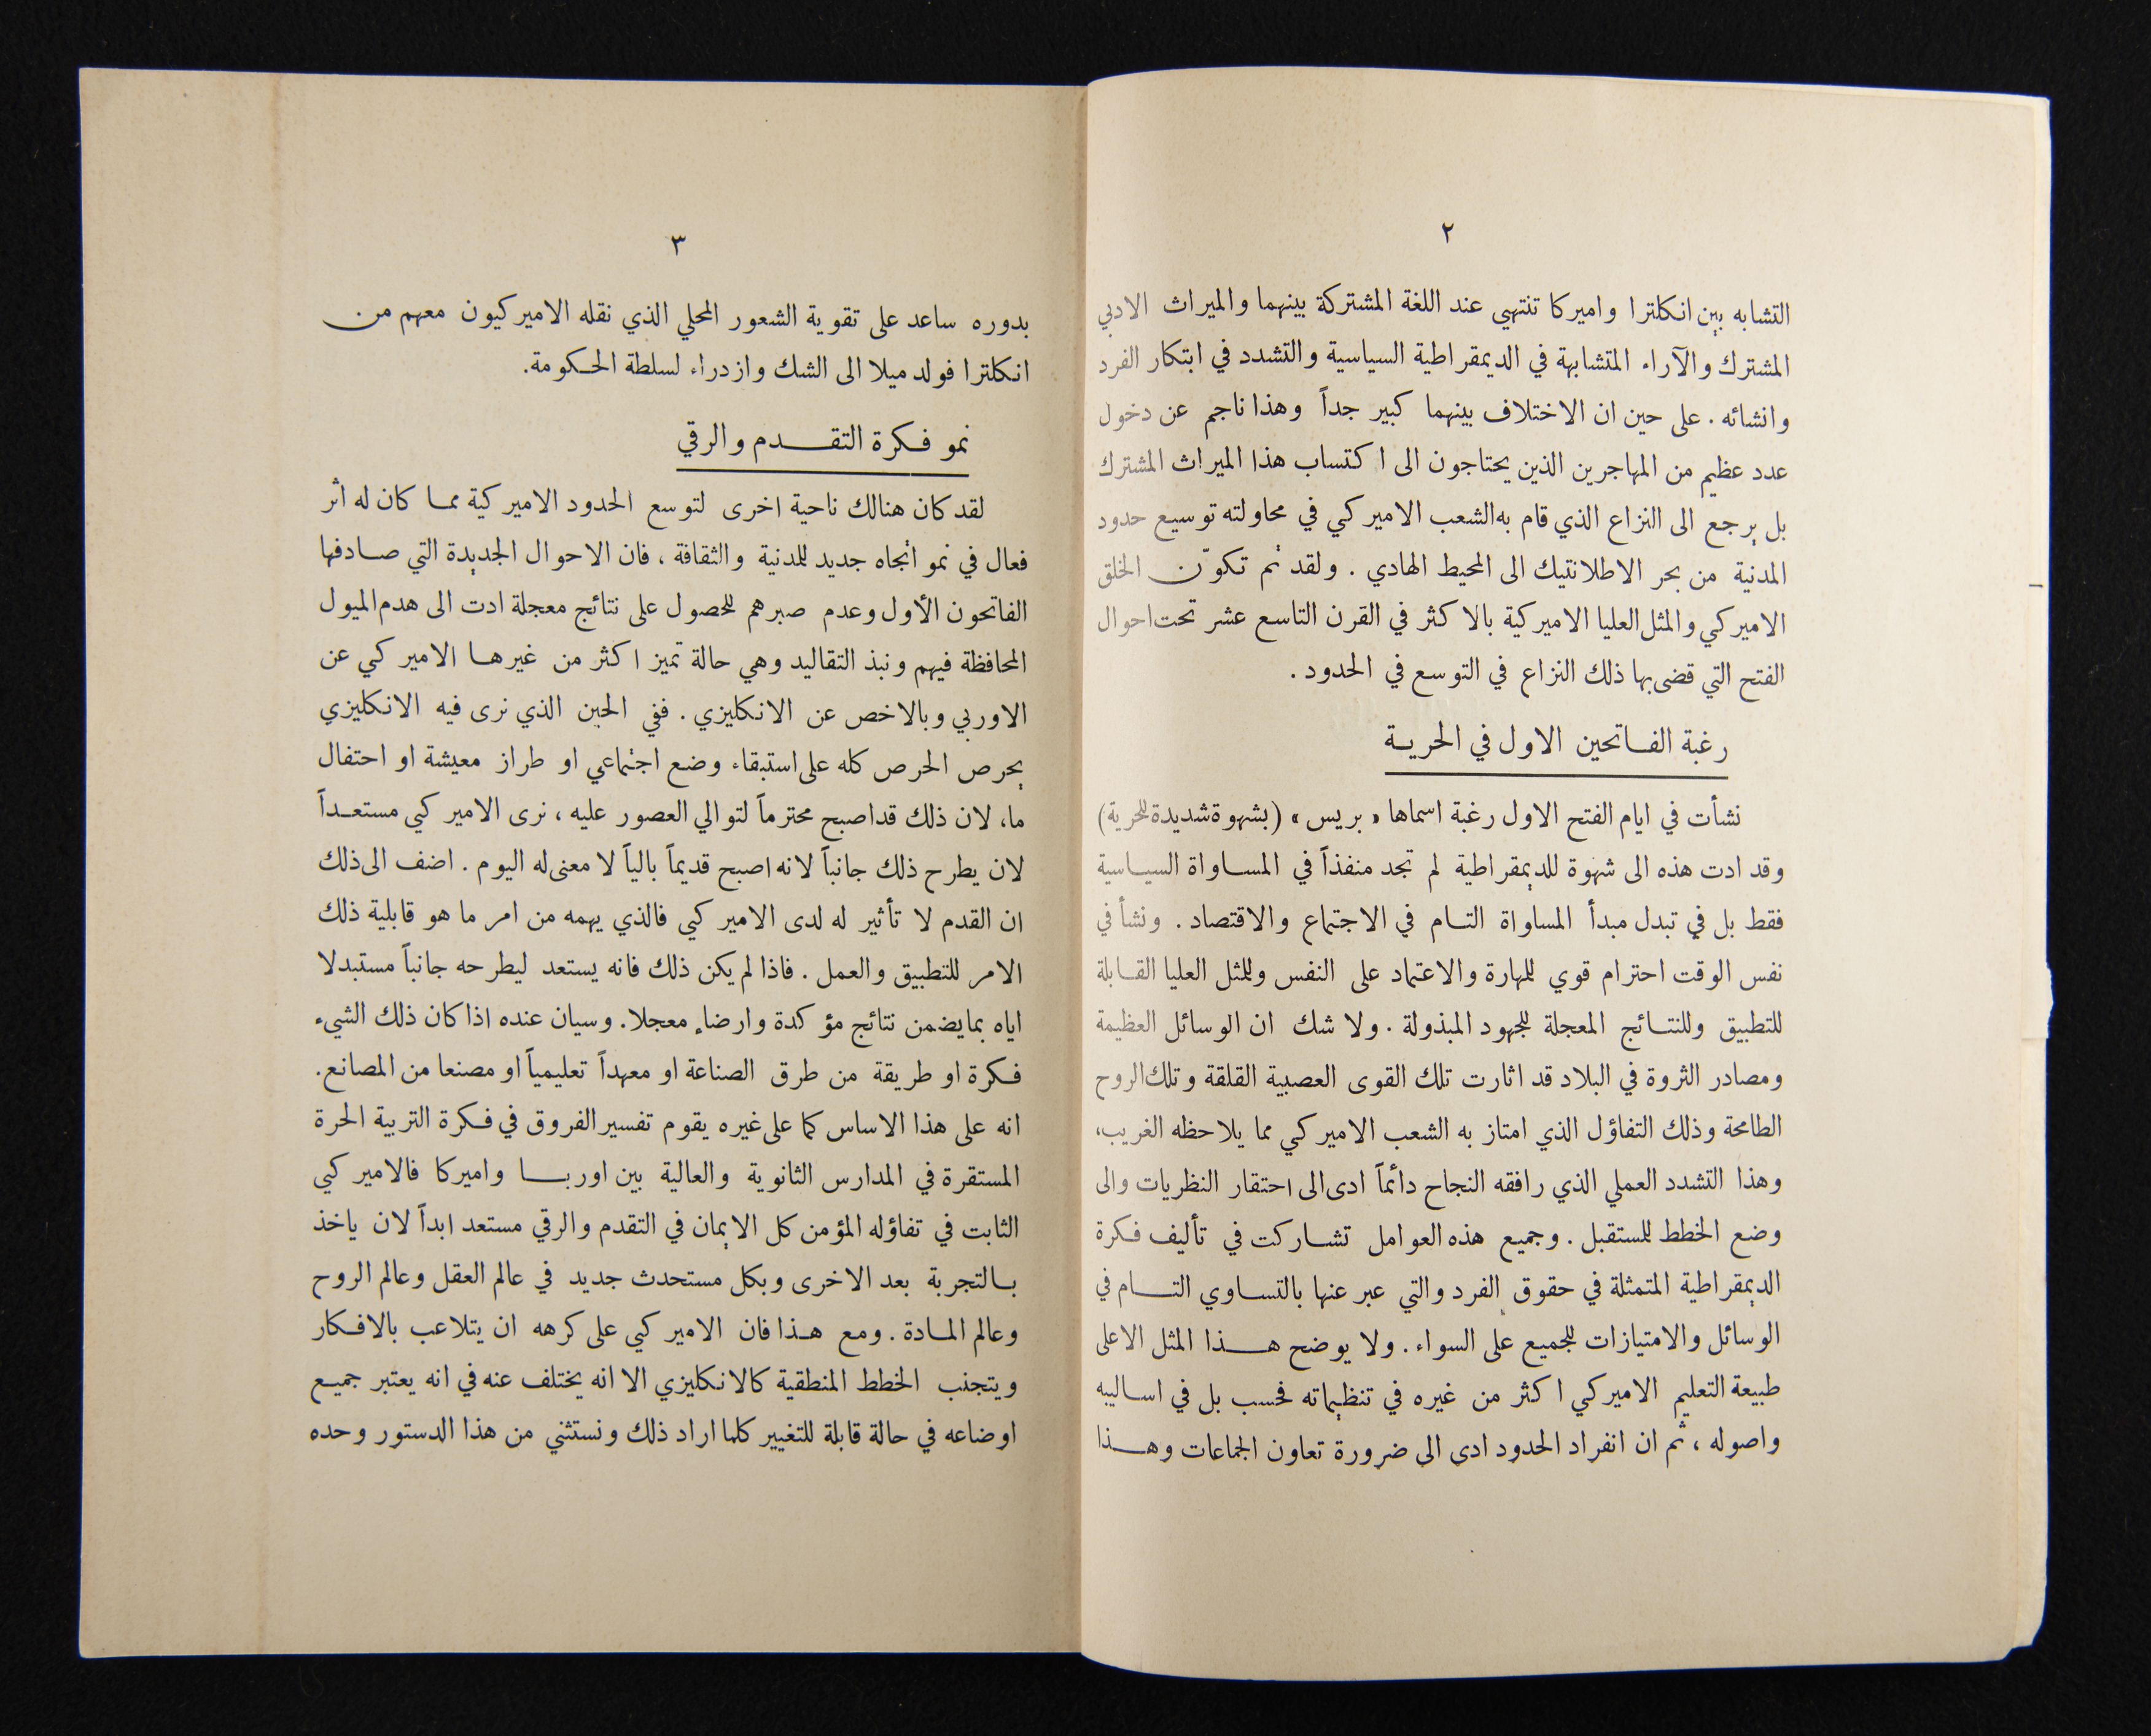 ٢
التشابه بين انكلترا واميركا تنتهي عند اللغة المشتركة بينهما والميراث الادبي
المشترك والآراء المتشابهة في الديمقراطية السياسية والتشدد في ابتكار الفرد
وانشائه . على حين ان الاختلاف بينهما كبير جداً وهذا ناجم عن دخول
عدد عظيم من المهاجرين الذين يحتاجون الى اكتساب هذا الميراث المشترك
بل يرجع الى النزاع الذي قام به الشعب الاميركي في محاولته توسيع حدود
المدنية من بحر الاطلانتيك الى المحيط الهادي . ولقد تم تكوّن الخلق
الاميركي والمثل العليا الاميركية بالاكثر في القرن التاسع عشر تحت احوال
الفتح التي قضى بها ذلك النزاع في التوسع في الحدود .
رغبة الفاتحين الاول في الحرية
نشأت في ايام الفتح الاول رغبة اسماها « بريس » (بشهوة شديدة للحرية)
وقد ادت هذه الى شهوة للديمقراطية لم تجد منفذاً في المساواة السياسية
فقط بل في تبدل مبدأ المساواة التام في الاجتماع والاقتصاد . ونشأ في
نفس الوقت احترام قوي للمهارة والاعتماد على النفس وللمثل العليا القابلة
للتطبيق وللنتائج المعجلة للجهود المبذولة . ولا شك ان الوسائل العظيمة
ومصادر الثروة في البلاد قد اثارت تلك القوى العصبية القلقة وتلك الروح
الطامحة وذلك التفاؤل الذي امتاز به الشعب الاميركي مما يلاحظه الغريب،
وهذا التشدد العملي الذي رافقه النجاح دائماً ادى الى احتقار النظريات والى
وضع الخطط للمستقبل . وجميع هذه العوامل تشاركت في تأليف فكرة
الديمقراطية المتمثلة في حقوق الفرد والتي عبر عنها بالتساوي التام في
الوسائل والامتيازات للجميع على السواء . ولا يوضح هذا المثل الاعلى
طبيعة التعليم الاميركي اكثر من غيره في تنظيماته فحسب بل في اساليبه
واصوله ، ثم ان انفراد الحدود ادى الى ضرورة تعاون الجماعات وهذا
٣
بدوره ساعد على تقوية الشعور المحلي الذي نقله الاميركيون معهم من
انكلترا فولد ميلا الى الشك وازدراء لسلطة الحكومة.
نمو فكرة التقدم والرقي
لقد كان هنالك ناحية اخرى لتوسع الحدود الاميركية مما كان له اثر
فعال في نمو اتجاه جديد للمدنية والثقافة ، فان الاحوال الجديدة التي صادفها
الفاتحون الأول وعدم صبرهم للحصول على نتائج معجلة ادت الى هدم الميول
المحافظة فيهم ونبذ التقاليد وهي حالة تميز اكثر من غيرها الاميركي عن
الاوربي وبالاخص عن الانكليزي . ففي الحين الذي نرى فيه الانكليزي
يحرص الحرص كله على استبقاء وضع اجتماعي او طراز معيشة او احتفال
ما، لان ذلك قد اصبح محترماً لتوالي العصور عليه ، نرى الاميركي مستعداً
لان يطرح ذلك جانباً لانه اصبح قديماً بالياً لا معنى له اليوم . اضف الى ذلك
ان القدم لا تأثير له لدى الاميركي فالذي يهمه من امر ما هو قابلية ذلك
الامر للتطبيق والعمل . فاذا لم يكن ذلك فانه يستعد ليطرحه جانباً مستبدلا
اياه بما يضمن نتائج مؤكدة وارضاء معجلا. وسيان عنده اذا كان ذلك الشيء
فكرة او طريقة من طرق الصناعة او معهداً تعليمياً او مصنعا من المصانع.
انه على هذا الاساس كما على غيره يقوم تفسير الفروق في فكرة التربية الحرة
المستقرة في المدارس الثانوية والعالية بين اوربا واميركا فالاميركي
الثابت في تفاؤله المؤمن كل الايمان في التقدم والرقي مستعد ابداً لان ياخذ
بالتجربة بعد الاخرى وبكل مستحدث جديد في عالم العقل وعالم الروح
وعالم المادة . ومع هذا فان الاميركي على كرهه ان يتلاعب بالافكار
ويتجنب الخطط المنطقية كالانكليزي الا انه يختلف عنه في انه يعتبر جميع
اوضاعه في حالة قابلة للتغيير كلما اراد ذلك ونستثني من هذا الدستور وحده